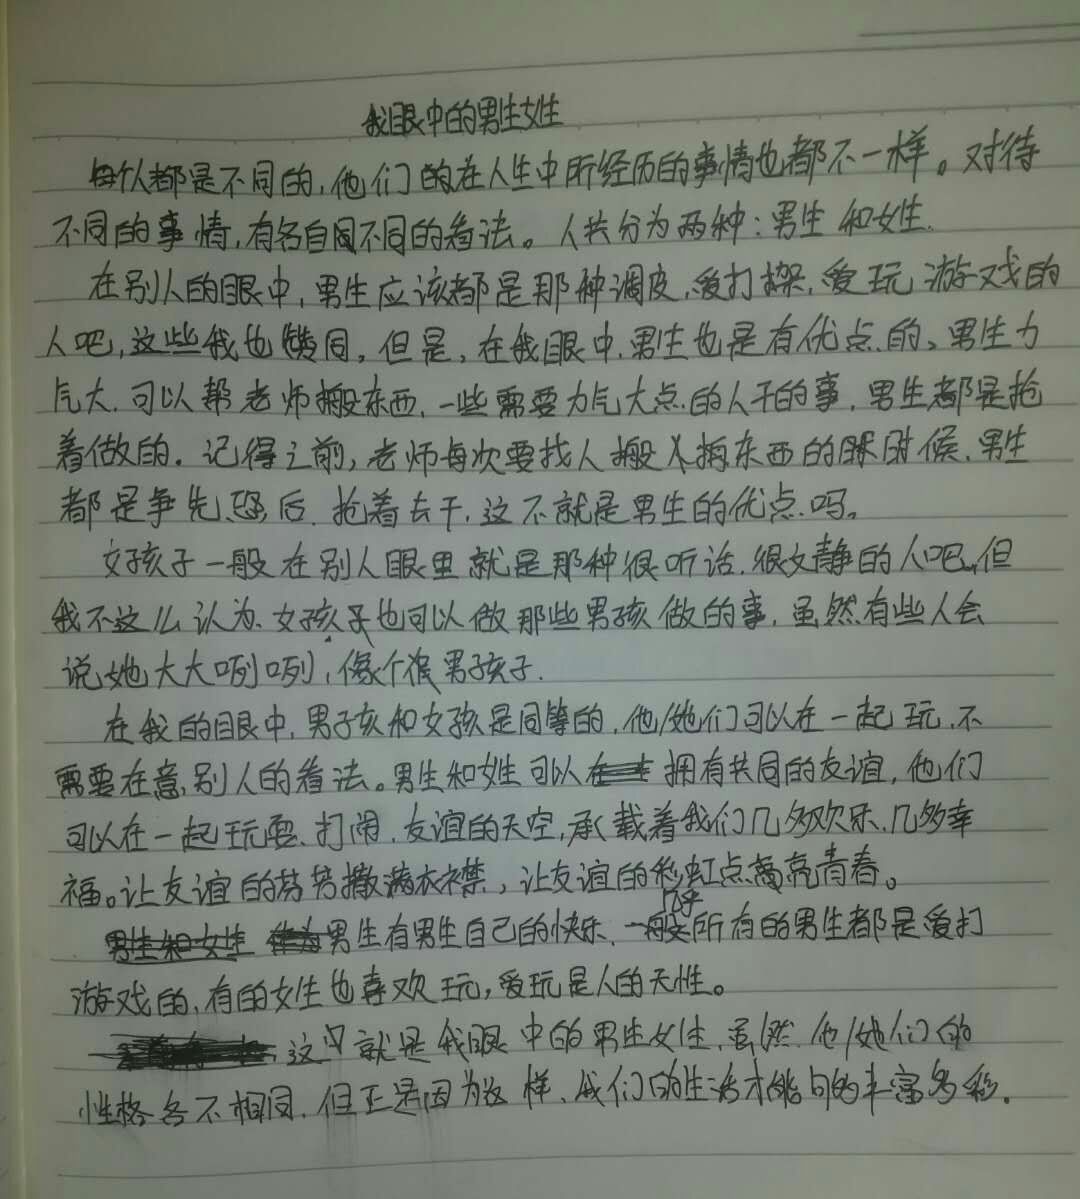 我眼中的男生女生
每个人都是不同的，他们的在人生中所经历的事情也都不一样。对待
不同的事情，有各自同不同的看法。人共分为两种：男生和女生.
在别人的眼中，男生应该都是那种调皮、爱打架、爱玩游戏的
人吧，这些我也赞同，但是，在我眼中，男生也是有优点的、男生力
气大、可以帮老师搬东西、一些需要力气大点的人干的事，男生都是抢
着做的。记得之前，老师每次要找人搬东西的时候、男生
都是争先恐后、抢着去干，这不就是男生的优点吗。
女孩子一般在别人眼里就是那种很听话、很文静的人吧，但
我不这么认为、女孩子也可以做那些男孩做的事，虽然有些人会
说她大大咧咧，像个假男孩子.
在我的眼中，男孩和女孩是同等的，他/她们可以在一起玩、不
需要在意别人的看法。男生和女生可以拥有共同的友谊，他们
可以在一起玩耍、打闹、友谊的天空，承载着我们几多欢乐、几多幸
福。让友谊的芬芳撒满衣襟，让友谊的彩虹点亮青春。
男生有男生自己的快乐、几乎所有的男生都是爱打
游戏的、有的女生也喜欢玩，爱玩是人的天性。
这就是我眼中的男生女生，虽然他/她们的
性格各不相同，但正是因为这样、我们的生活才能的丰富多彩.